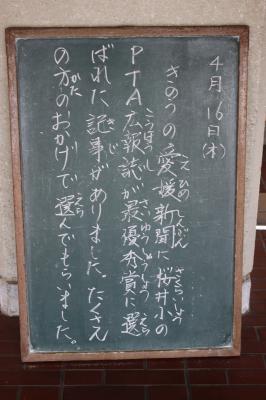 4月16日(木)
きのうの愛媛新聞に桜井小の
PTA広報誌が最優秀賞に選
ばれた記事がありました。たくさん
の方のおかげで選んでもらいました。